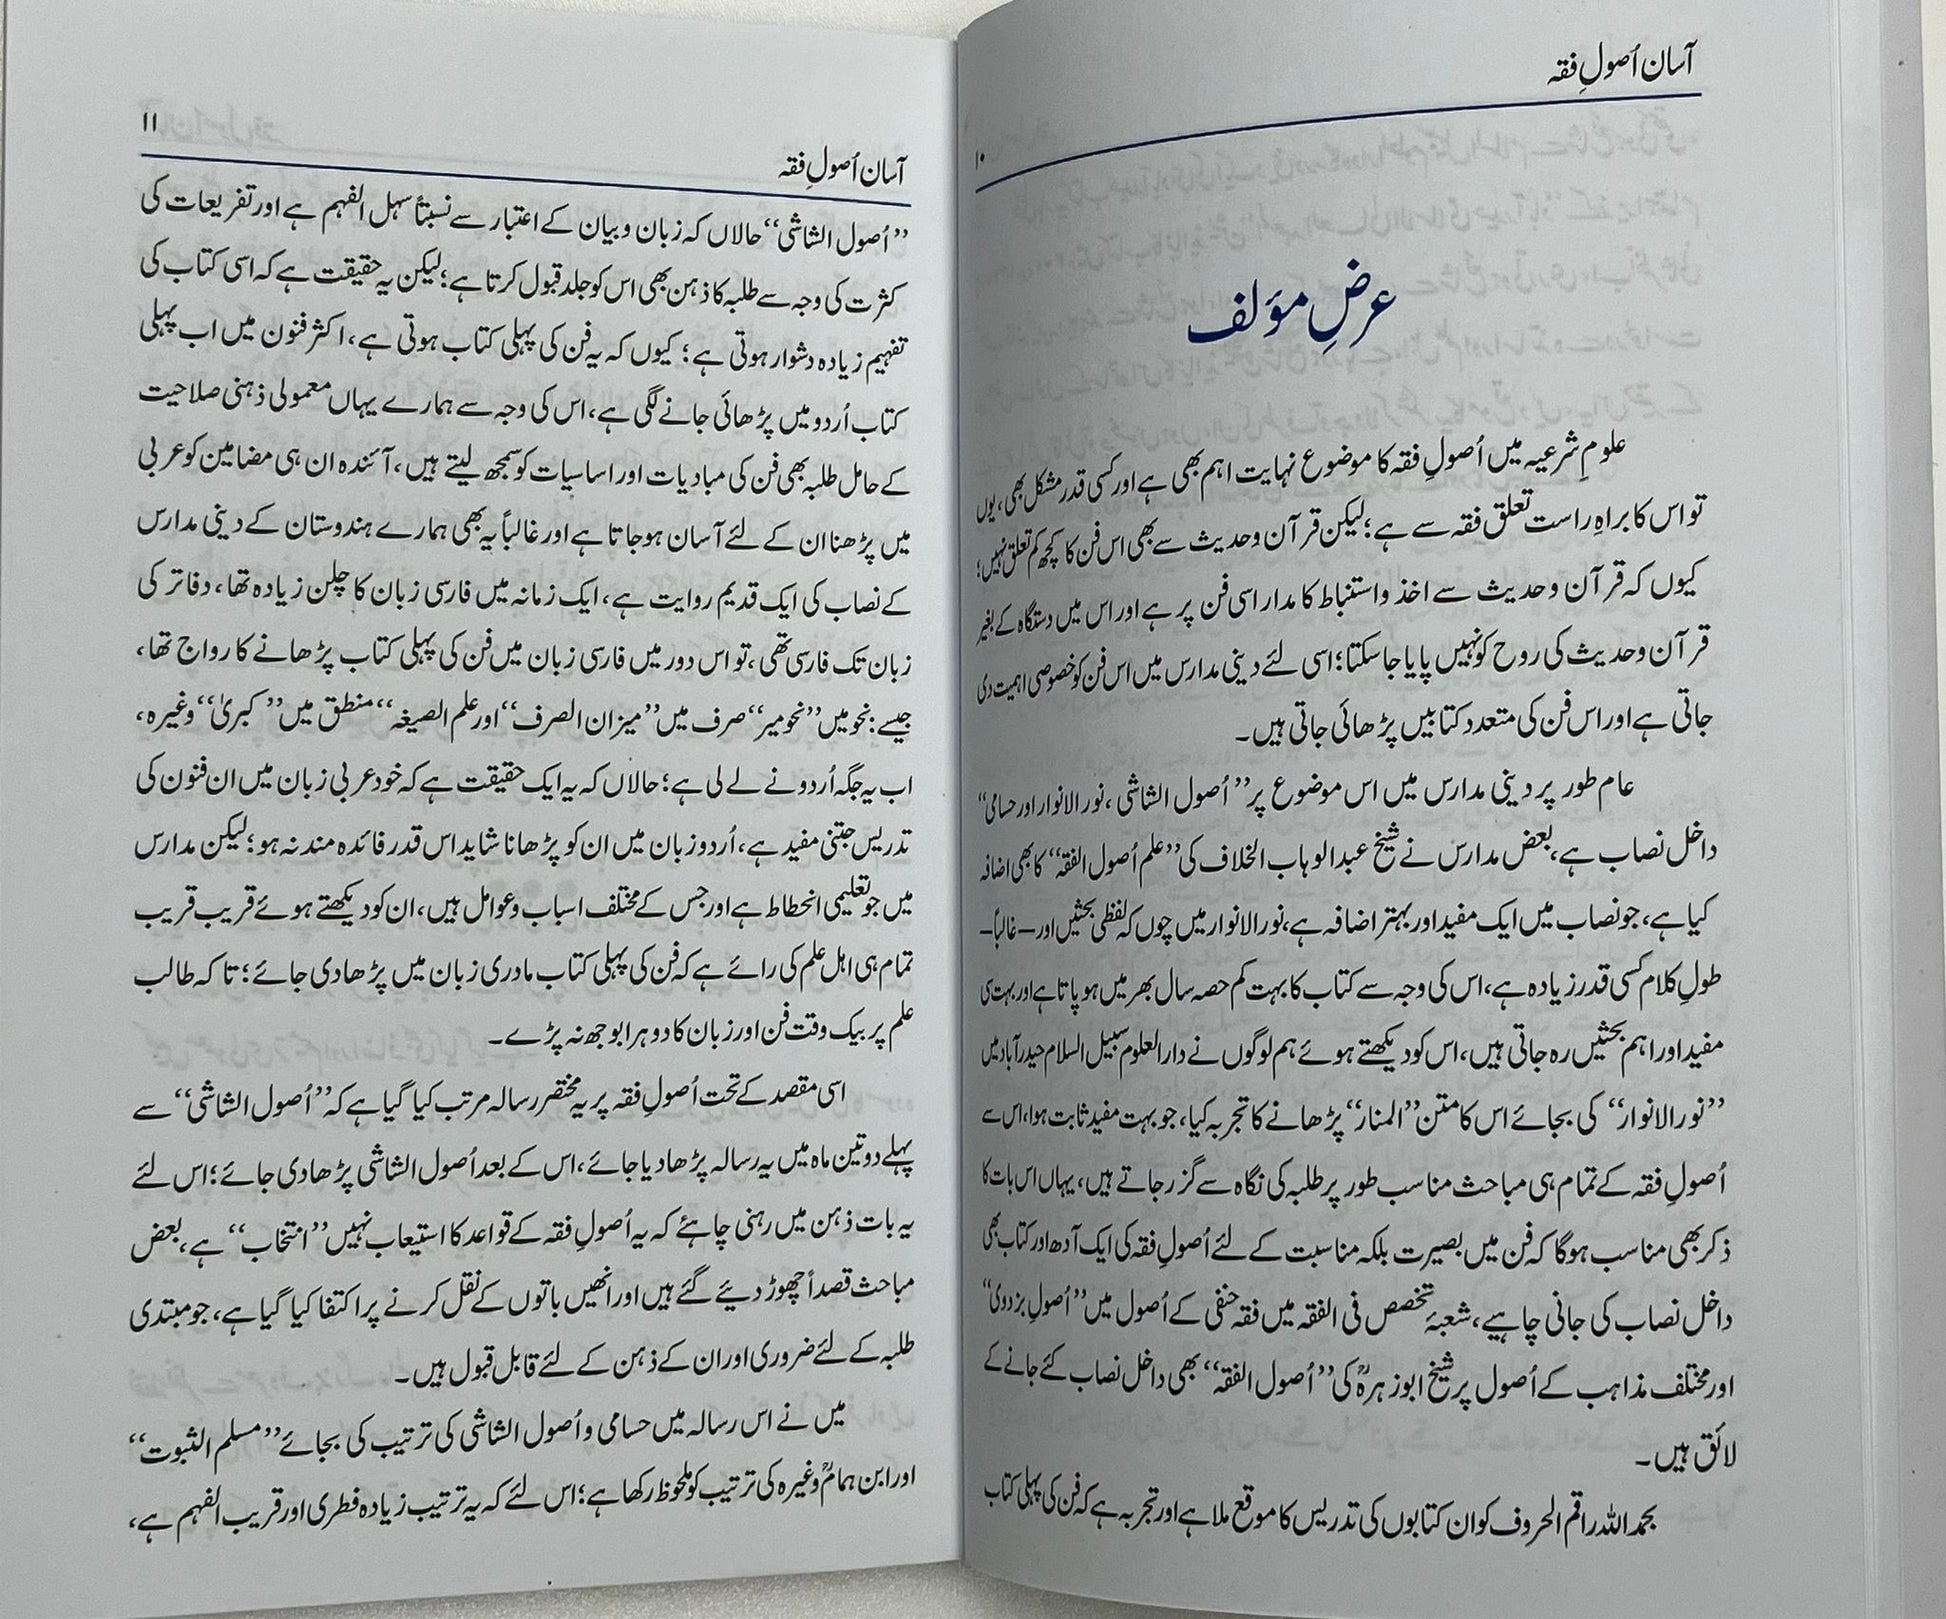 آسان اُصولِ فقہ
۱۰
عرضِ مؤلف
علومِ شرعیہ میں اُصولِ فقہ کا موضوع نہایت اہم بھی ہے اور کسی قدر مشکل بھی، یوں
تو اس کا براہِ راست تعلق فقہ سے ہے؛ لیکن قرآن وحدیث سے بھی اس فن کا کچھ کم تعلق نہیں؛
کیوں کہ قرآن وحدیث سے اخذ واستنباط کا مدار اسی فن پر ہے اور اس میں دستگاہ کے بغیر
قرآن وحدیث کی روح کو نہیں پایا جاسکتا؛ اسی لئے دینی مدارس میں اس فن کو خصوصی اہمیت دی
جاتی ہے اور اس فن کی متعدد کتابیں پڑھائی جاتی ہیں۔
عام طور پر دینی مدارس میں اس موضوع پر ’’اُصول الشاشی، نور الانوار اور حسامی‘‘
داخل نصاب ہے، بعض مدارس نے شیخ عبدالوہاب الخلاف کی ’’علم اُصول الفقہ‘‘ کا بھی اضافہ
کیا ہے، جو نصاب میں ایک مفید اور بہتر اضافہ ہے، نور الانوار میں چوں کہ لفظی بحثیں اور – غالباً –
طولِ کلام کسی قدر زیادہ ہے، اس کی وجہ سے کتاب کا بہت کم حصہ سال بھر میں ہو پاتا ہے اور بہت سی
مفید اور اہم بحثیں رہ جاتی ہیں، اس کو دیکھتے ہوئے ہم لوگوں نے دارالعلوم سبیل السلام حیدرآباد میں
’’نور الانوار‘‘ کی بجائے اس کا متن ’’المنار‘‘ پڑھانے کا تجربہ کیا، جو بہت مفید ثابت ہوا، اس سے
اُصولِ فقہ کے تمام ہی مباحث مناسب طور پر طلبہ کی نگاہ سے گزر جاتے ہیں، یہاں اس بات کا
ذکر بھی مناسب ہوگا کہ فن میں بصیرت بلکہ مناسبت کے لئے اُصولِ فقہ کی ایک آدھ اور کتاب بھی
داخل نصاب کی جانی چاہیے، شعبۂ تخصص فی الفقہ میں فقہ حنفی کے اُصول میں ’’اُصولِ بزدوی‘‘
اور مختلف مذاہب کے اُصول پر شیخ ابوزہرہؒ کی ’’اُصول الفقہ‘‘ بھی داخل نصاب کئے جانے کے
لائق ہیں۔
بحمد اللہ راقم الحروف کو ان کتابوں کی تدریس کا موقع ملا ہے اور تجربہ ہے کہ فن کی پہلی کتاب
۱۱
آسان اُصولِ فقہ
’’اُصول الشاشی‘‘ حالاں کہ زبان وبیان کے اعتبار سے نسبتاً سہل الفہم ہے اور تفریعات کی
کثرت کی وجہ سے طلبہ کا ذہن بھی اس کو جلد قبول کرتا ہے؛ لیکن یہ حقیقت ہے کہ اسی کتاب کی
تفہیم زیادہ دشوار ہوتی ہے؛ کیوں کہ یہ فن کی پہلی کتاب ہوتی ہے، اکثر فنون میں اب پہلی
کتاب اُردو میں پڑھائی جانے لگی ہے، اس کی وجہ سے ہمارے یہاں معمولی ذہنی صلاحیت
کے حامل طلبہ بھی فن کی مبادیات اور اساسیات کو سمجھ لیتے ہیں، آئندہ ان ہی مضامین کو عربی
میں پڑھنا ان کے لئے آسان ہوجاتا ہے اور غالباً یہ بھی ہمارے ہندوستان کے دینی مدارس
کے نصاب کی ایک قدیم روایت ہے، ایک زمانہ میں فارسی زبان کا چلن زیادہ تھا، دفاتر کی
زبان تک فارسی تھی، تو اس دور میں فارسی زبان میں فن کی پہلی کتاب پڑھانے کا رواج تھا،
جیسے: نحو میں ’’نحو میر‘‘ صرف میں ’’میزان الصرف‘‘ اور علم الصیغہ‘‘ منطق میں ’’کبریٰ‘‘ وغیرہ،
اب یہ جگہ اُردو نے لے لی ہے؛ حالاں کہ یہ ایک حقیقت ہے کہ خود عربی زبان میں ان فنون کی
تدریس جتنی مفید ہے، اُردو زبان میں ان کو پڑھانا شاید اس قدر فائدہ مند نہ ہو؛ لیکن مدارس
میں جو تعلیمی انحطاط ہے اور جس کے مختلف اسباب وعوامل ہیں، ان کو دیکھتے ہوئے قریب قریب
تمام ہی اہل علم کی رائے ہے کہ فن کی پہلی کتاب مادری زبان میں پڑھادی جائے؛ تاکہ طالب
علم پر بیک وقت فن اور زبان کا دوہرا بوجھ نہ پڑے۔
اسی مقصد کے تحت اُصولِ فقہ پر یہ مختصر رسالہ مرتب کیا گیا ہے کہ ’’اُصول الشاشی‘‘ سے
پہلے دو تین ماہ میں یہ رسالہ پڑھا دیا جائے، اس کے بعد اُصول الشاشی پڑھادی جائے؛ اس لئے
یہ بات ذہن میں رہنی چاہئے کہ یہ اُصولِ فقہ کے قواعد کا استیعاب نہیں ’’انتخاب‘‘ ہے، بعض
مباحث قصداً چھوڑ دیئے گئے ہیں اور انھیں باتوں کے نقل کرنے پر اکتفا کیا گیا ہے، جو مبتدی
طلبہ کے لئے ضروری اور ان کے ذہن کے لئے قابل قبول ہیں۔
میں نے اس رسالہ میں حسامی و اُصول الشاشی کی ترتیب کی بجائے ’’مسلم الثبوت‘‘
اور ابن ہمامؒ وغیرہ کی ترتیب کو ملحوظ رکھا ہے؛ اس لئے کہ یہ ترتیب زیادہ فطری اور قریب الفہم ہے،